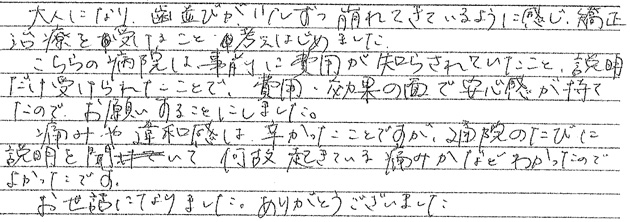 大人になり、歯並びが少しずつ崩れてきているように感じ、矯正
治療を受けること考えはじめました。
こちらの病院は、事前に費用が知らされていたこと、説明
だけ受けられたことで、費用・効果の面で安心感が持て
たので、お願いすることにしました。
痛みや違和感は、辛かったことですが、通院のたびに
説明を聞いて 何故起きている痛みかなどわかったので
よかったです。
お世話になりました。ありがとうございました